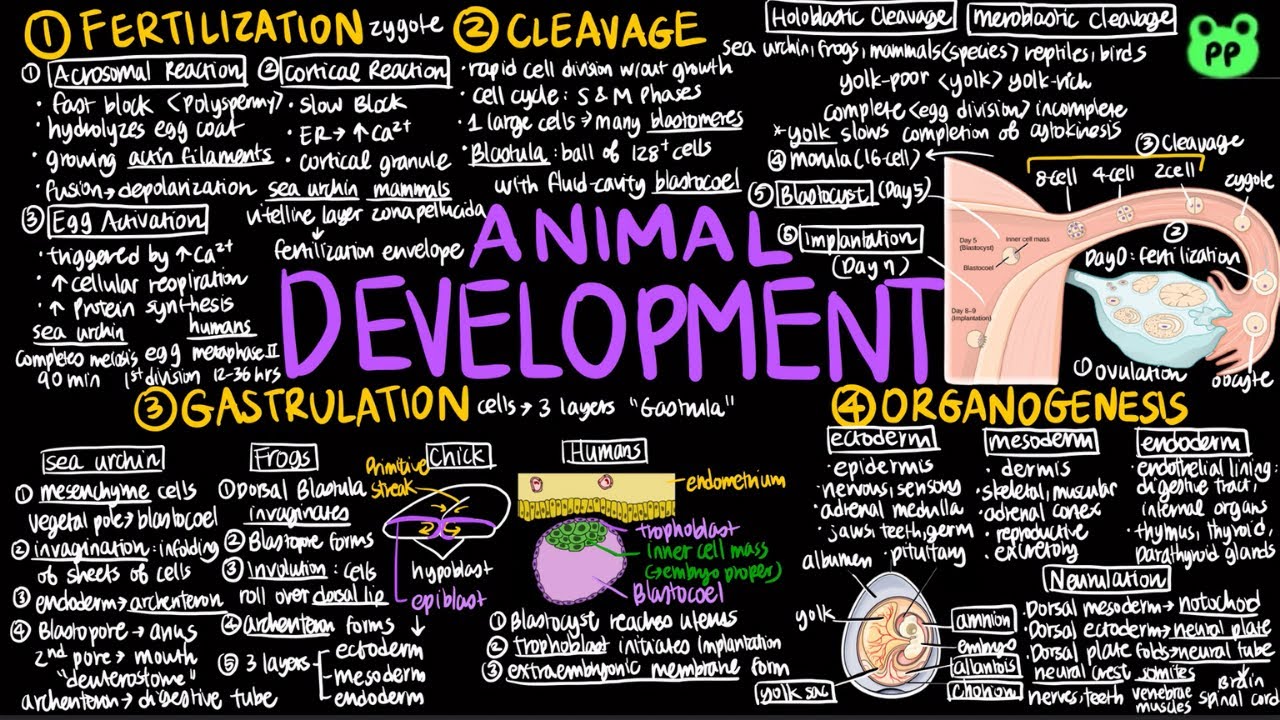 ① FERTILIZATION zygote
① Acrosomal Reaction
• fast block <polyspermy>
• hydrolyzes egg coat
• growing actin filaments
• fusion → depolarization
② Cortical Reaction
• slow Block
• ER → ↑ Ca²⁺
• cortical granule
sea urchin mammals
vitelline layer zona pellucida
↓
fertilization envelope
③ Egg Activation
• triggered by ↑ Ca²⁺
• ↑ cellular respiration
• ↑ Protein synthesis
sea urchin humans
completes meiosis egg metaphase II
90 min 1st division 12-36 hrs
② CLEAVAGE
• rapid cell division w/out growth
• cell cycle: S & M Phases
• 1 large cells ⇒ many blastomeres
• Blastula: ball of 128⁺ cells
with fluid-cavity blastocoel
Holoblastic Cleavage meroblastic Cleavage
sea urchin, frogs, mammals (species) reptiles, birds
yolk-poor <yolk> yolk-rich
complete <egg division> incomplete
* yolk slows completion of cytokinesis
PP
ANIMAL
DEVELOPMENT
③ Cleavage
8-cell 4-cell 2cell zygote
④ morula (16-cell)
⑤ Blastocyst (Day 5)
⑤ Implantation
(Day 7)
②
Day 0: fertilization
Day 5
(Blastocyst)
Inner cell mass
Blastocoel
Day 8–9
(Implantation)
① ovulation
oocyte
③ GASTRULATION cells → 3 layers "Gastrula"
sea urchin
① mesenchyme cells
vegetal pole → blastocoel
② invagination: infolding
of sheets of cells
③ endoderm → archenteron
④ Blastopore → anus
2nd pore → mouth
"deuterostome"
archenteron → digestive tube
Frogs
① Dorsal Blastula
invaginates
② Blastopore forms
③ Involution: cells
roll over dorsal lip
④ archenteron forms
⑤ 3 layers
ectoderm
mesoderm
endoderm
Chick
Primitive
streak
hypoblast
epiblast
Humans
endometrium
trophoblast
inner cell mass
(→ embryo proper)
Blastocoel
① Blastocyst reaches uterus
② trophoblast initiates implantation
③ extraembryonic membrane form
④ ORGANOGENESIS
ectoderm
• epidermis
• nervous, sensory
• adrenal medulla
• jaws, teeth, germ
• pituitary
mesoderm
• dermis
• skeletal, muscular
• adrenal cortex
• reproductive
• excretory
endoderm
• endothelial lining:
digestive tract,
internal organs
• thymus, thyroid,
parathyroid glands
albumen
yolk
yolk sac
amnion
embryo
allantois
chorion
Neurulation
• Dorsal mesoderm → notochord
• Dorsal ectoderm → neural plate
• Dorsal plate folds → neural tube
neural crest somites Brain
nerves, teeth vertebrae spinal cord
muscles